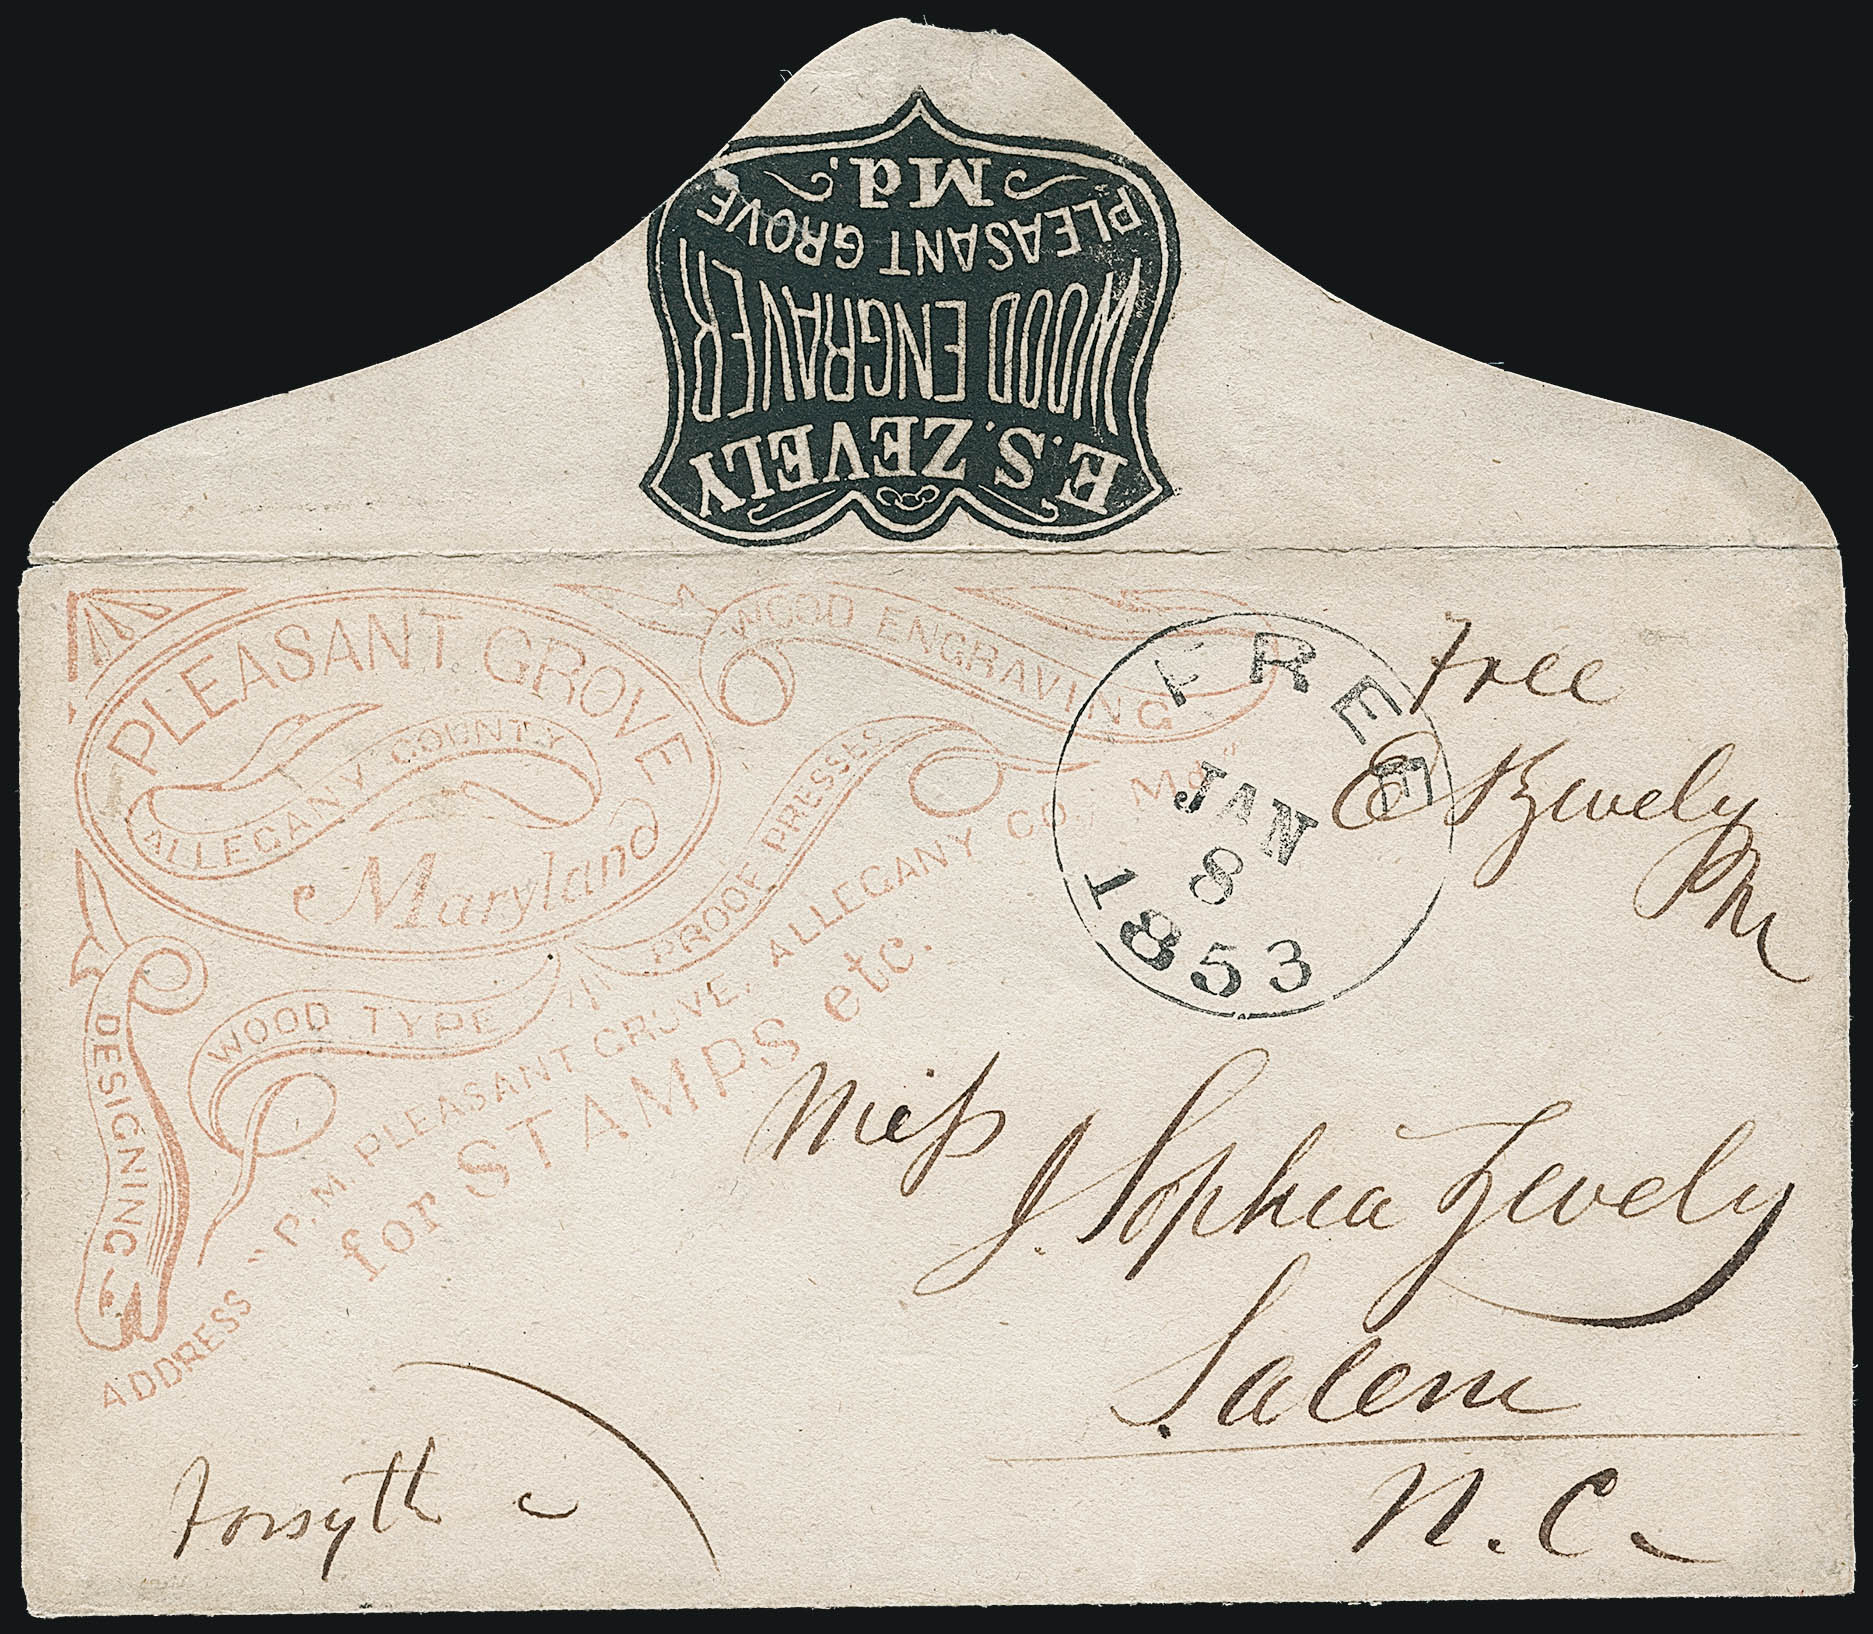 E. S. ZEVELY
WOOD ENGRAVER
PLEASANT GROVE
Md.
PLEASANT GROVE
ALLEGANY COUNTY
Maryland
WOOD ENGRAVING
PROOF PRESSES
WOOD TYPE
DESIGNING
ADDRESS "P. M. PLEASANT GROVE, ALLEGANY CO., Md"
for STAMPS etc.
FREE
JAN
8
1853
Free
E S Zevely
PM
Miss
J. Sophia Zevely
Salem
N. C.
Forsyth c